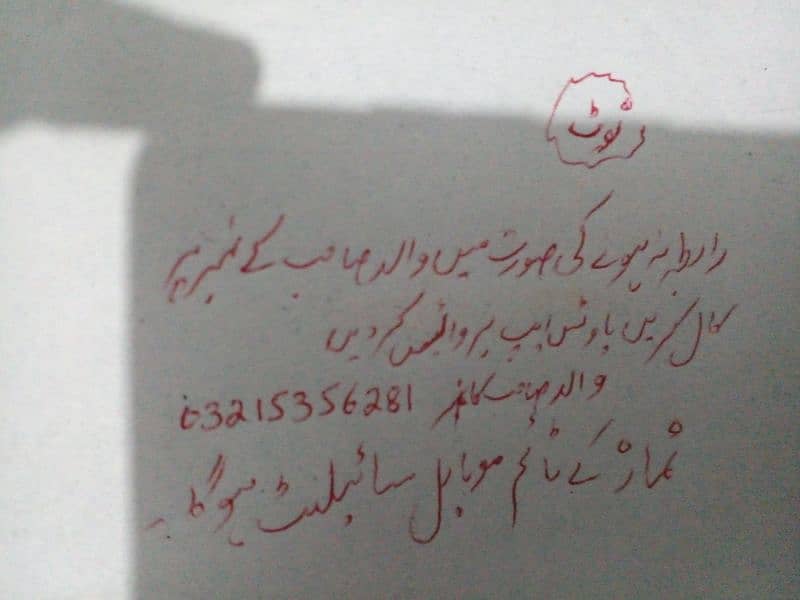 نوٹ
رابطہ نہ ہونے کی صورت میں والد صاحب کے نمبر پر
کال کریں یا وٹس ایپ پر وائس کر دیں
والد صاحب کا نمبر 03215356281
نماز کے ٹائم موبائل سائیلنٹ ہو گا۔